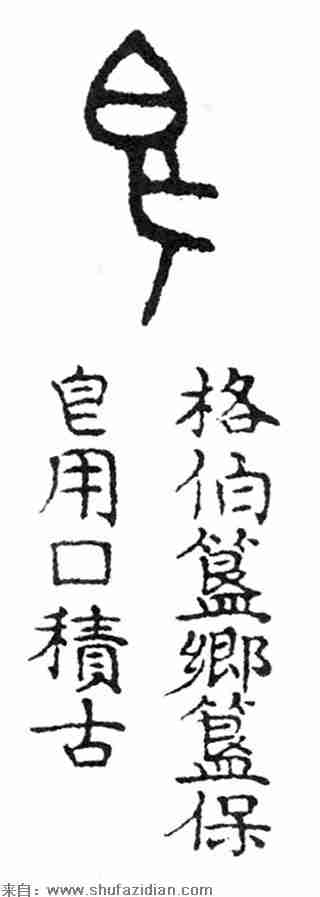 格伯簋鄉簋保
皀用口積古
来自：www.shufazidian.com